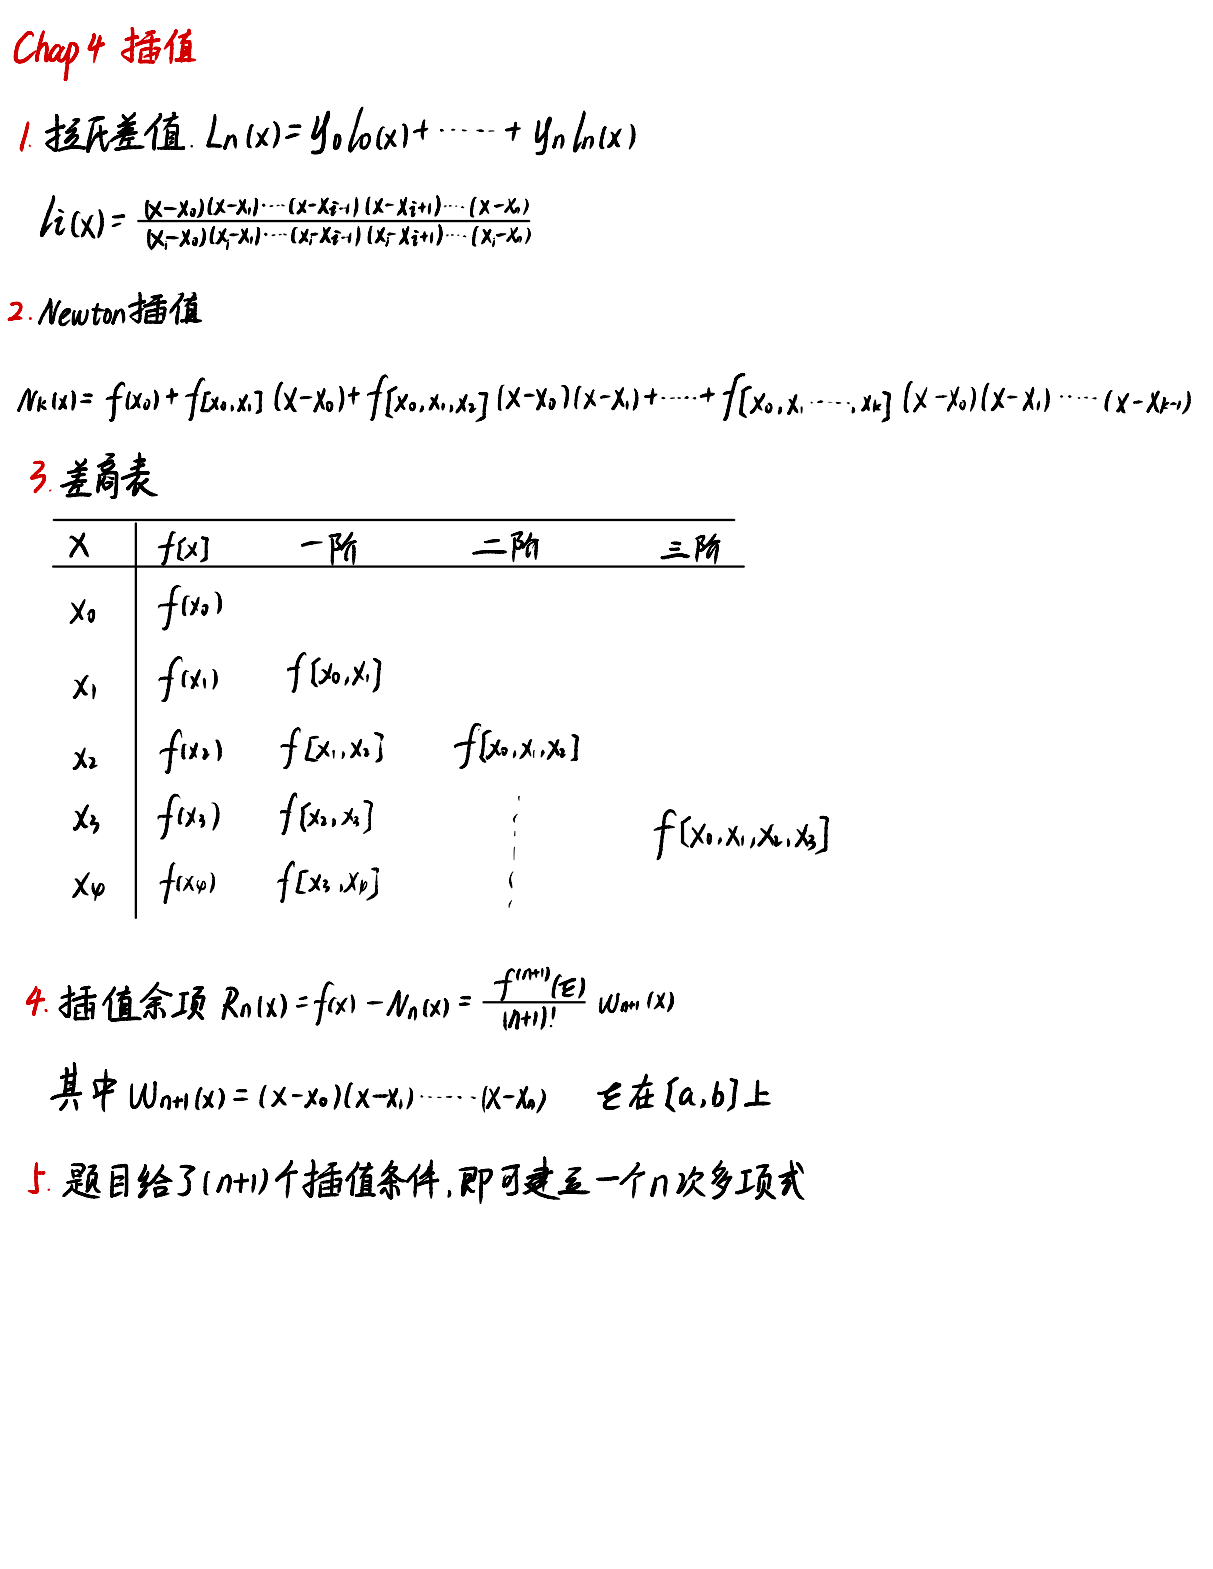 Chap 4 插值
1. 拉氏差值. Ln(x)=y₀l₀(x)+……+ynln(x)
li(x)=\frac{(x-x₀)(x-x₁)…(x-x_{i-1})(x-x_{i+1})…(x-x_n)}{(x_i-x₀)(x_i-x₁)…(x_i-x_{i-1})(x_i-x_{i+1})…(x_i-x_n)}
2. Newton插值
N_k(x)=f(x₀)+f[x₀,x₁](x-x₀)+f[x₀,x₁,x₂](x-x₀)(x-x₁)+……+f[x₀,x₁……,x_k](x-x₀)(x-x₁)……(x-x_{k-1})
3. 差商表
x f[x] 一阶 二阶 三阶
x₀ f(x₀)
x₁ f(x₁) f[x₀,x₁]
x₂ f(x₂) f[x₁,x₂] f[x₀,x₁,x₂]
x₃ f(x₃) f[x₂,x₃] f[x₀,x₁,x₂,x₃]
x₄ f(x₄) f[x₃,x₄]
4. 插值余项 Rn(x)=f(x)-Nn(x)=\frac{f^{(n+1)}(ξ)}{(n+1)!} W_{n+1}(x)
其中 W_{n+1}(x)=(x-x₀)(x-x₁)……(x-x_n) ξ在[a,b]上
5. 题目给了(n+1)个插值条件,即可建立一个n次多项式